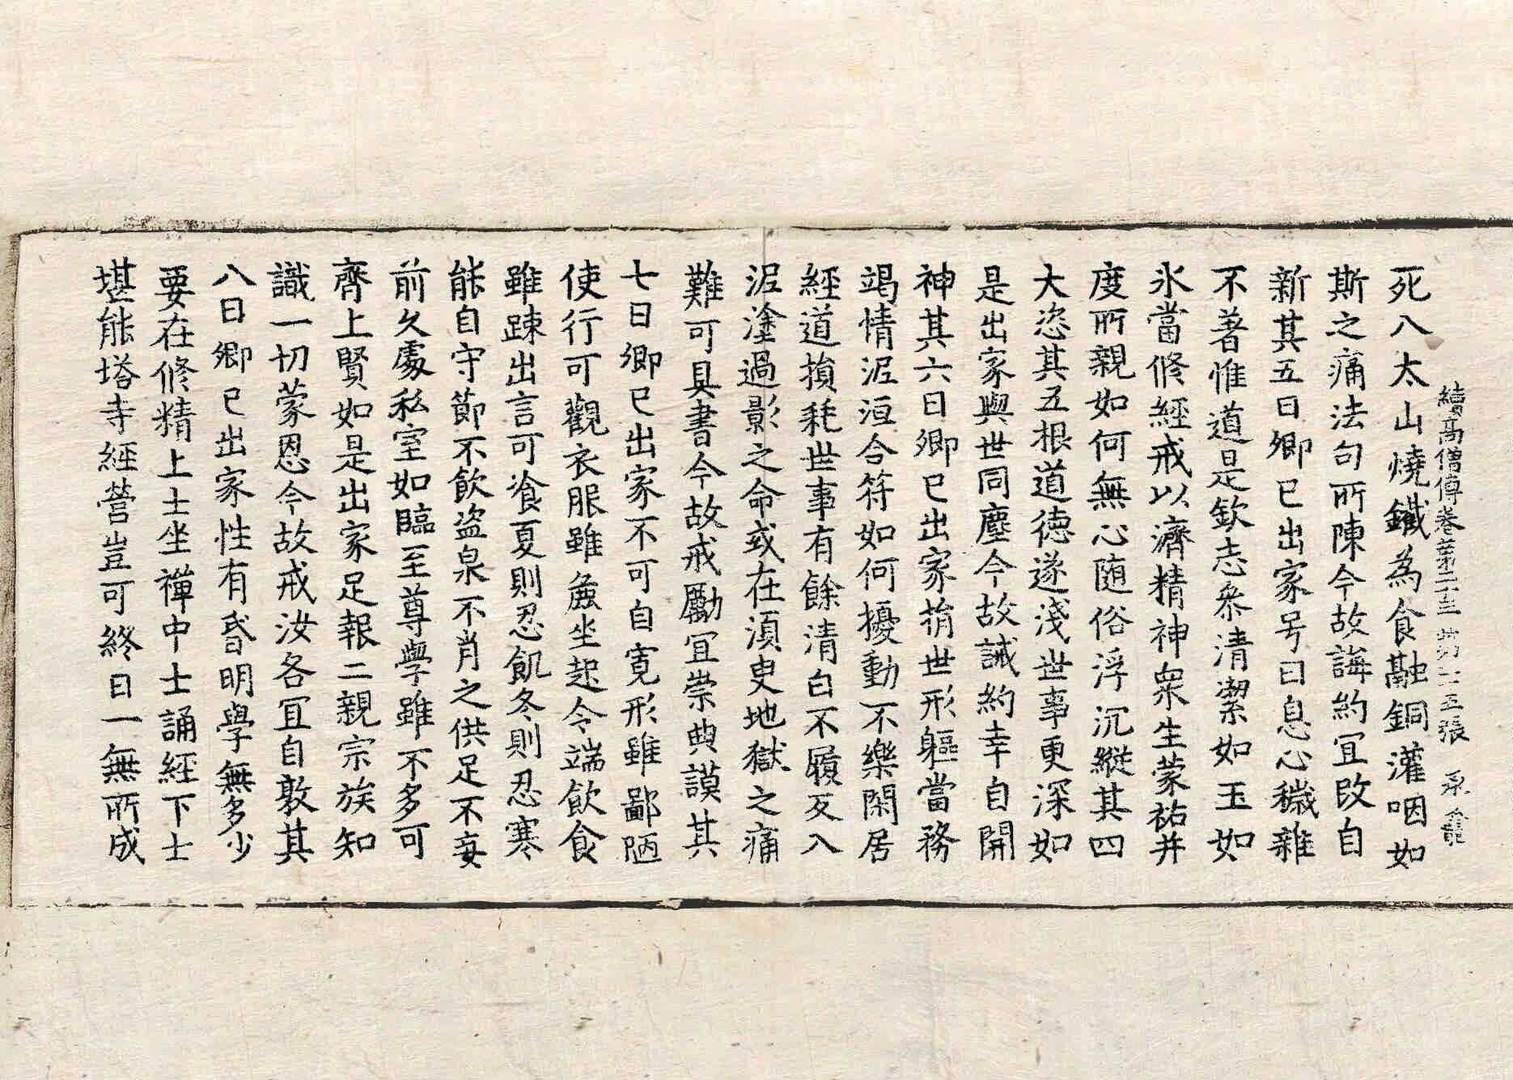 續高僧傳卷第二十三 第十五張 承
死八太山燒鐵為食融銅灌咽如
斯之痛法句所陳今故誨約冝改自
新其五曰卿已出家号曰息心穢雜
不著惟道是欽志叅清潔如玉如
氷當修經戒以濟精神衆生蒙祐并
度所親如何無心随俗浮沉縱其四
大恣其五根道徳遂淺世事更深如
是出家與世同塵今故誡約幸自開
神其六曰卿已出家捐世形軀當務
竭情泥洹合符如何擾動不樂閑居
經道損耗世事有餘清白不履反入
泥塗過影之命或在湏㬰地獄之痛
難可具書今故戒勵冝崇典謨其
七曰卿已出家不可自寛形雖鄙陋
使行可觀衣服雖麁坐起令端飲食
雖踈出言可飡夏則忍飢冬則忍寒
能自守節不飲盗泉不肖之供足不妄
前久處私室如臨至尊學雖不多可
齊上賢如是出家足報二親宗族知
識一切蒙恩今故戒汝各冝自敦其
八曰卿已出家性有昏明學無多少
要在修精上士坐禪中士誦經下士
堪能塔寺經營豈可終日一無所成